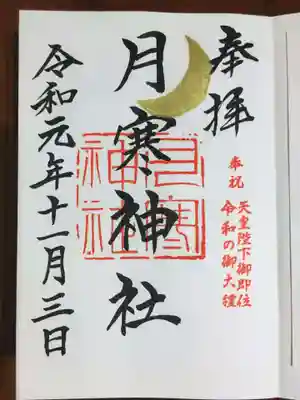 奉拝
奉祝 天皇陛下御即位
令和の御大禮
月寒神社
月寒神社
令和元年十一月三日